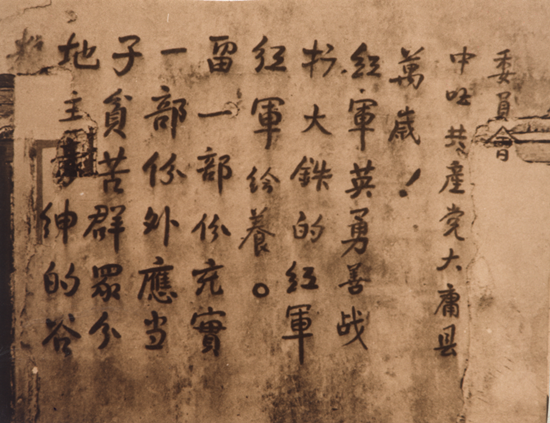 地主紳的谷
子貧苦群眾分
一部份外應当
留一部份充實
红軍给養。
扩大鉄的紅軍
紅軍英勇善战
萬歲！
中共產党大庸县
委員會